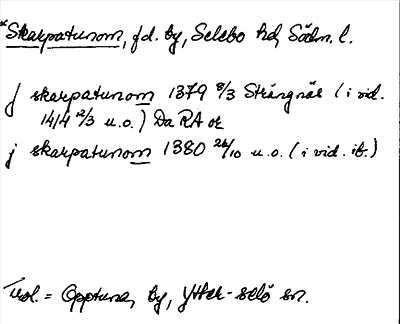 *Skarpatunom, fd. by, Selebo hd, Södm. l.
J skarpatunom 1379 8/3 Strängnäs (i vid.
1414 12/3 u.o.) Da RA or
j skarpatunom 1380 26/10 u.o. (i vid. ib.)
Trol. = Opptuna, by, Ytter-selö sn.